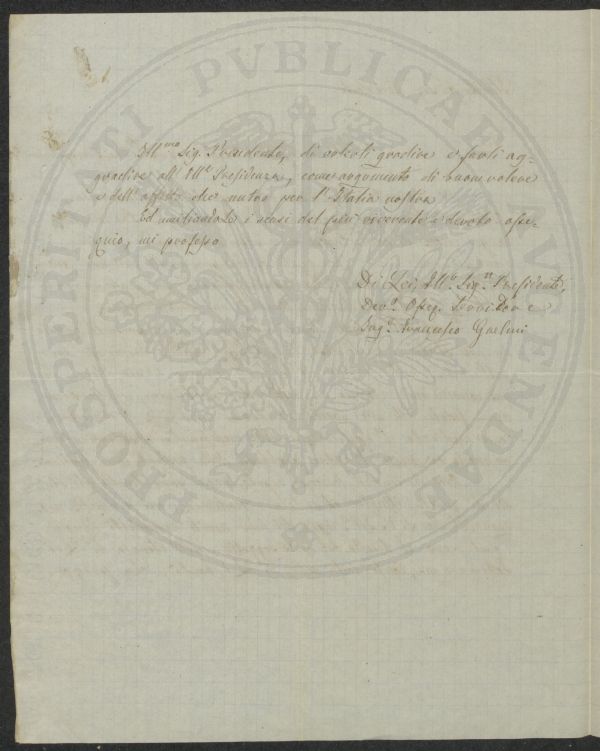 PROSPERITATI PUBLICAE AUGENDAE
Ill.mo Sig. Presidente, di volerli gradire e farli ag-
gradire all' Ill.e Presidenza, come argomento di buon volere
e dell' affetto che nutro per l' Italia nostra
Ed umiliandole i sensi del più riverente e devoto osse-
quio, mi professo
Di Lei, Ill.o Sig.r Presidente,
Dev.o Osseq. Servidore
Ing.e Francesco